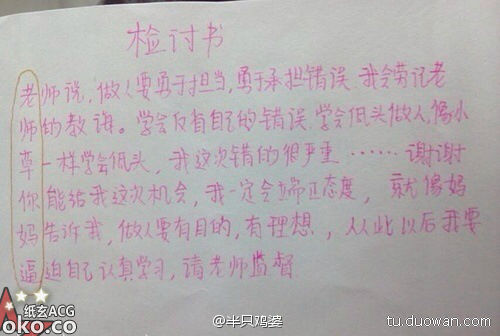 检讨书
老师说,做人要勇于担当,勇于承担错误 我会劳记老
师的教诲。学会反省自己的错误 学会低头做人,像小
草一样学会低头,我这次错的很严重……谢谢
你能给我这次机会,我一定会端正态度,就像妈
妈告诉我,做人要有目的,有理想,从此以后我要
逼迫自己认真学习,请老师监督
纸玄ACG
oko.co
@半只鸡婆
tu.duowan.com